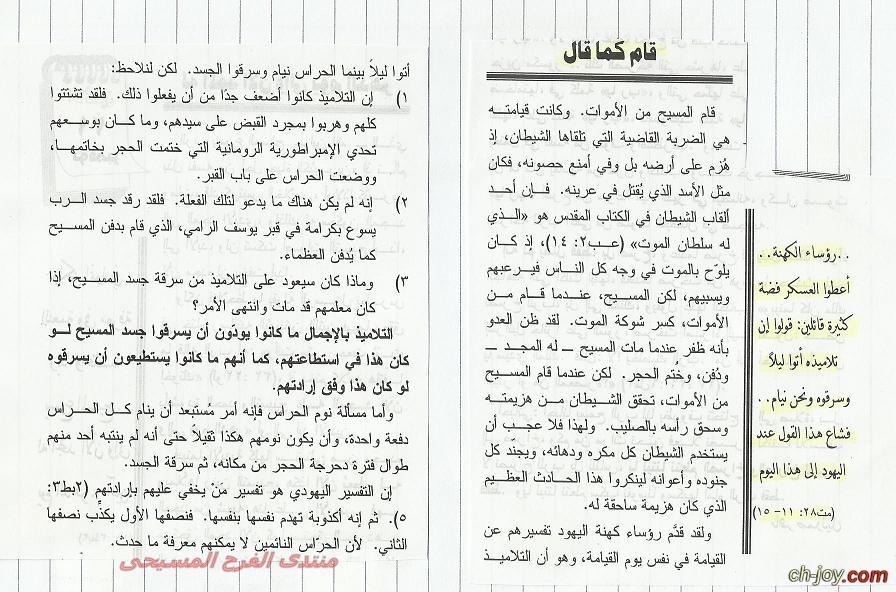 قام كما قال
قام المسيح من الأموات. وكانت قيامته
هي الضربة القاضية التي تلقاها الشيطان، إذ
هُزم على أرضه بل وفي أمنع حصونه، فكان
مثل الأسد الذي يُقتل في عرينه. فإن أحد
ألقاب الشيطان في الكتاب المقدس هو «الذي
له سلطان الموت» (عب٢: ١٤)، إذ كان
يلوّح بالموت في وجه كل الناس فيرعبهم
ويسبيهم، لكن المسيح، عندما قام من
الأموات، كسر شوكة الموت. لقد ظن العدو
بأنه ظفر عندما مات المسيح ــ له المجد ــ
ودُفن، وخُتم الحجر. لكن عندما قام المسيح
من الأموات، تحقق الشيطان من هزيمته
وسحق رأسه بالصليب. ولهذا فلا عجب أن
يستخدم الشيطان كل مكره ودهائه، ويجنّد كل
جنوده وأعوانه لينكروا هذا الحادث العظيم
الذي كان هزيمة ساحقة له.
ولقد قدَّم رؤساء كهنة اليهود تفسيرهم عن
القيامة في نفس يوم القيامة، وهو أن التلاميذ
..رؤساء الكهنة..
أعطوا العسكر فضة
كثيرة قائلين: قولوا إن
تلاميذه أتوا ليلاً
وسرقوه ونحن نيام..
فشاع هذا القول عند
اليهود إلى هذا اليوم
(مت٢٨: ١١- ١٥)
أتوا ليلاً بينما الحراس نيام وسرقوا الجسد. لكن لنلاحظ:
١) إن التلاميذ كانوا أضعف جدًا من أن يفعلوا ذلك. فلقد تشتتوا
كلهم وهربوا بمجرد القبض على سيدهم، وما كان بوسعهم
تحدي الإمبراطورية الرومانية التي ختمت الحجر بخاتمها،
ووضعت الحراس على باب القبر.
٢) إنه لم يكن هناك ما يدعو لتلك الفعلة. فلقد رقد جسد الرب
يسوع بكرامة في قبر يوسف الرامي، الذي قام بدفن المسيح
كما يُدفن العظماء.
٣) وماذا كان سيعود على التلاميذ من سرقة جسد المسيح، إذا
كان معلمهم قد مات وانتهى الأمر؟
التلاميذ بالإجمال ما كانوا يودّون أن يسرقوا جسد المسيح لو
كان هذا في استطاعتهم، كما أنهم ما كانوا يستطيعون أن يسرقوه
لو كان هذا وفق إرادتهم.
وأما مسألة نوم الحراس فإنه أمر مُستبعد أن ينام كل الحراس
دفعة واحدة، وأن يكون نومهم هكذا ثقيلاً حتى أنه لم ينتبه أحد منهم
طوال فترة دحرجة الحجر من مكانه، ثم سرقة الجسد.
إن التفسير اليهودي هو تفسير مَنْ يخفي عليهم بإرادتهم (٢بط٣:
٥). ثم إنه أكذوبة تهدم نفسها بنفسها. فنصفها الأول يكذّب نصفها
الثاني. لأن الحرّاس النائمين لا يمكنهم معرفة ما حدث.
منتدى الفرح المسيحى
ch-joy.com